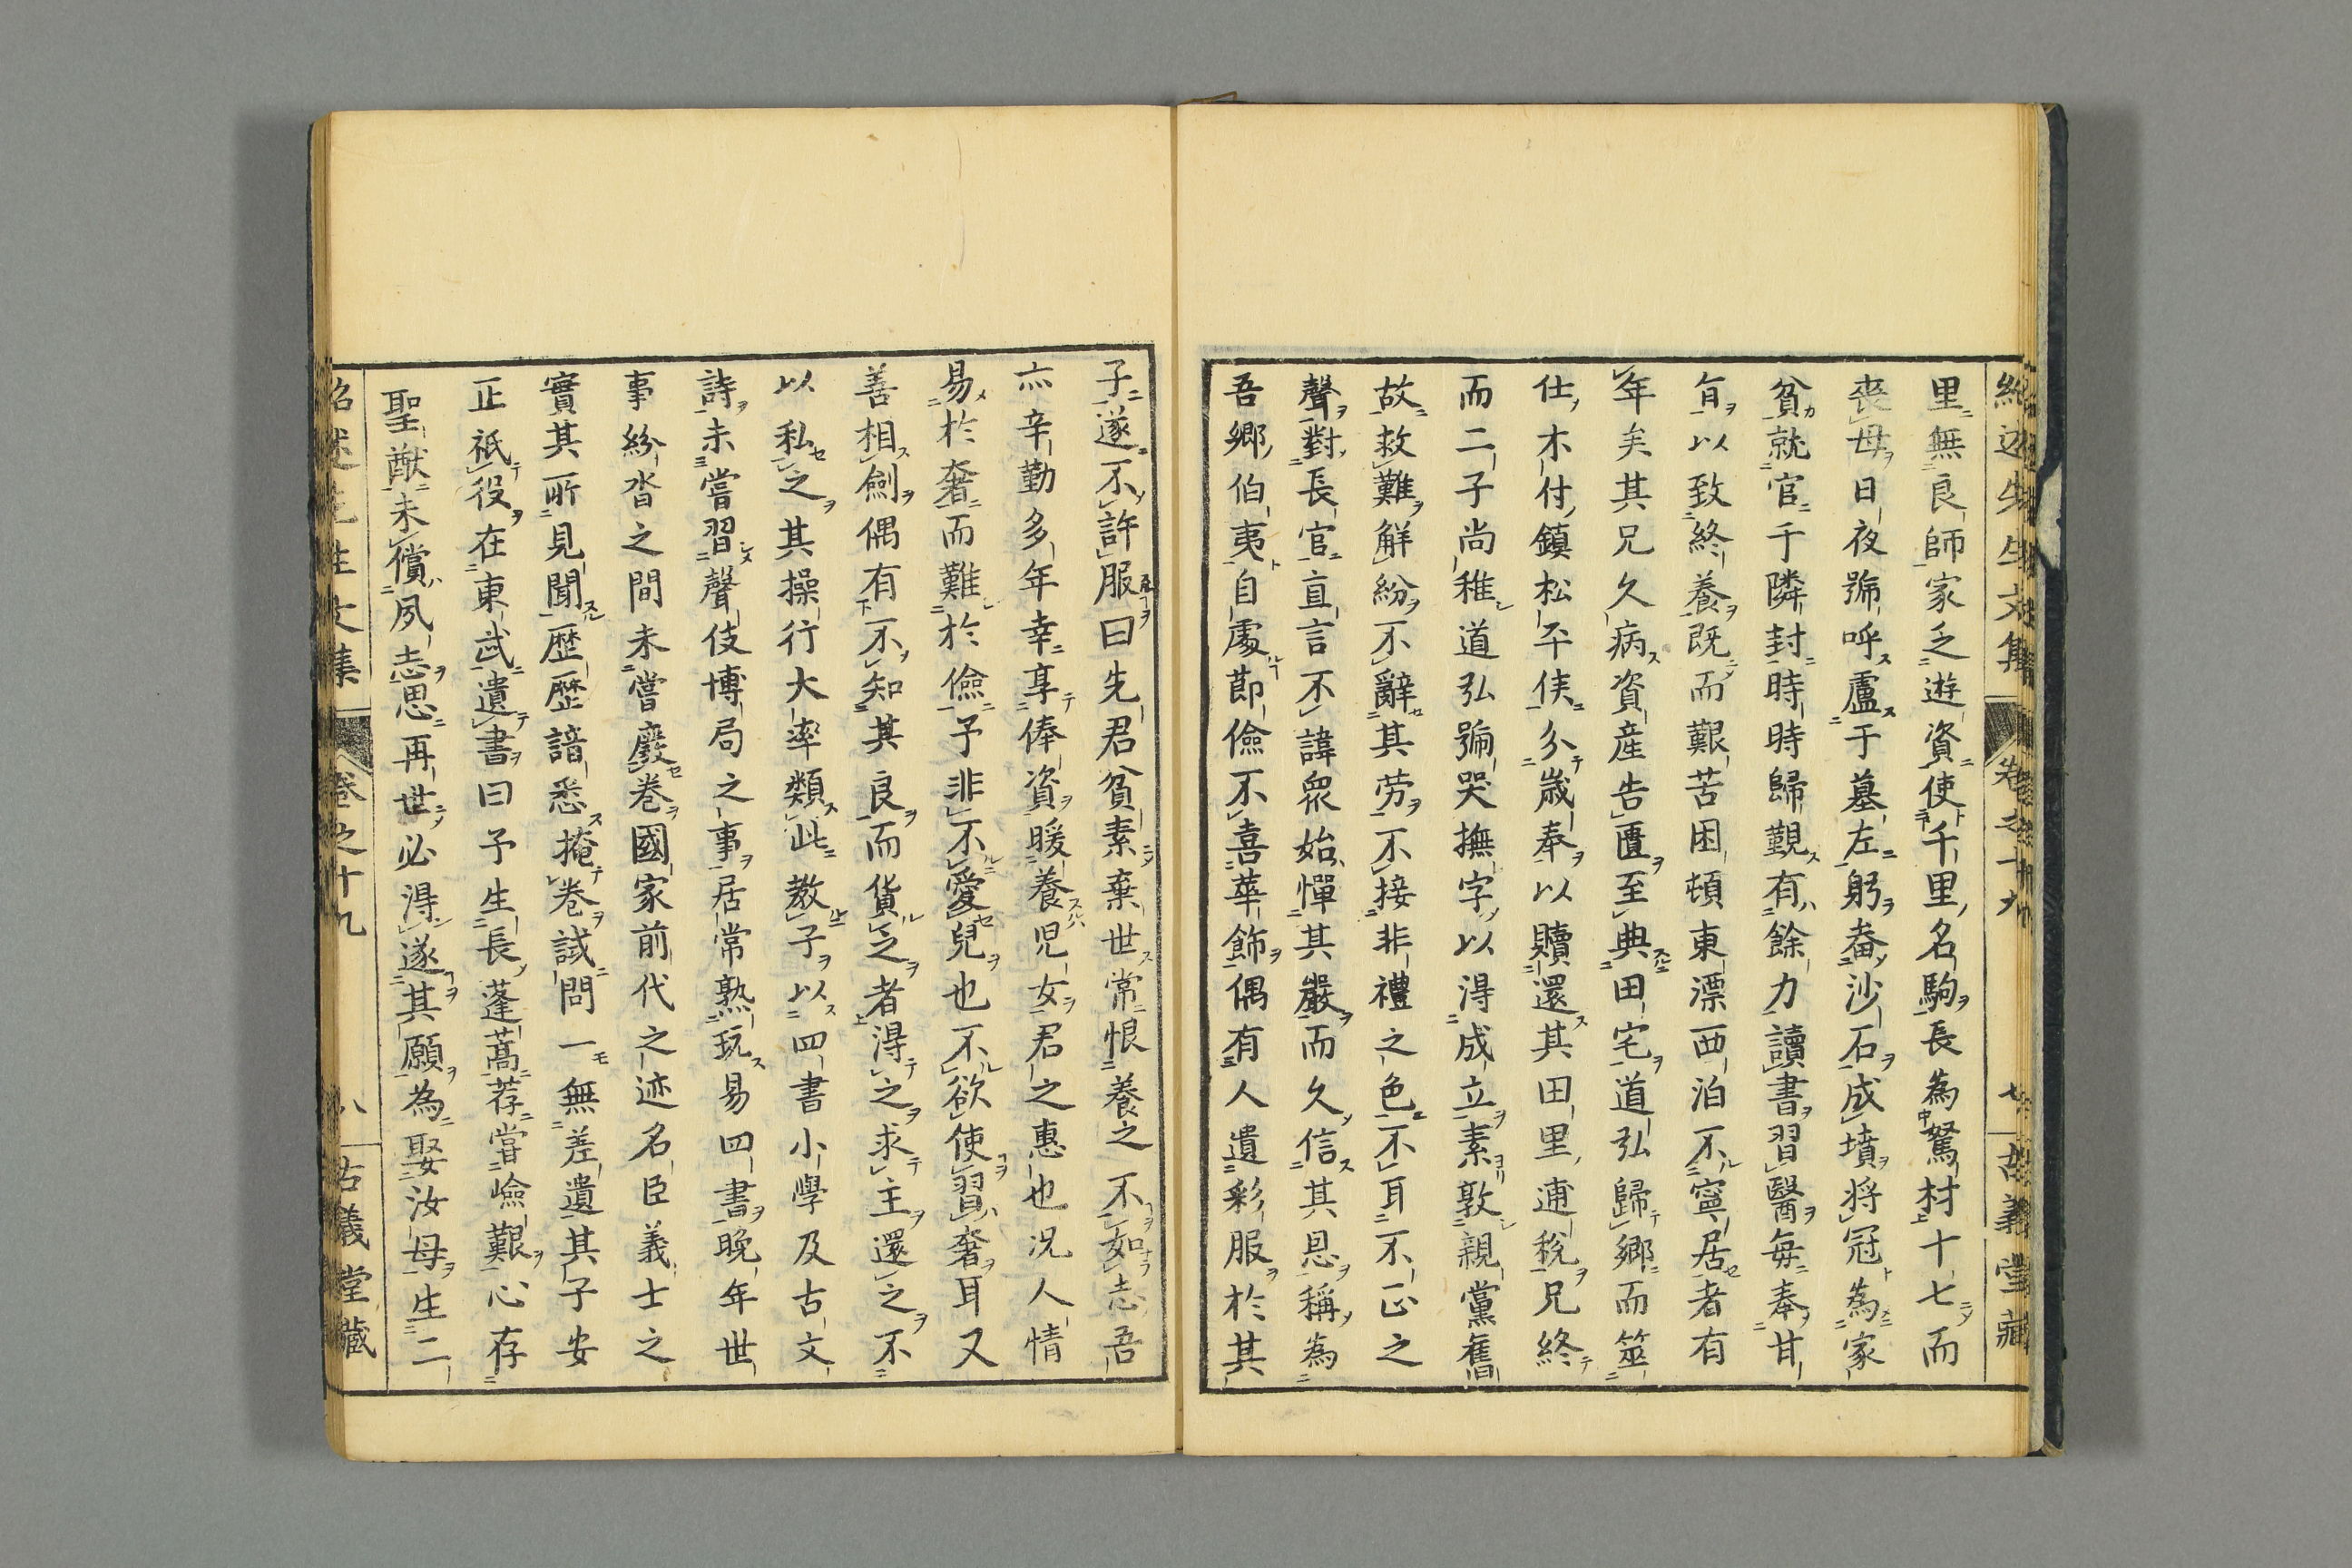 紹述先生文集 卷之十九 七 古義堂藏
里無良師家乏遊資使千里名駒長為駑材十七而
喪母日夜號呼廬于墓左躬畚沙石成墳將冠為家
貧就官于隣封時時歸覲有餘力讀書習醫每奉甘
旨以致終養既而艱苦困頓東漂西泊不寧居者有
年矣其兄久病資産告匱至典田宅道弘歸鄉而筮
仕木付鎮松平侯分歲奉以贖還其田里逋稅兄終
而二子尚稚道弘號哭撫字以得成立素敦親黨舊
故救難解紛不辭其劳不接非禮之色不耳不正之
聲對長官直言不諱眾始憚其嚴而久信其恩稱為
吾鄉伯夷自處節儉不喜華飾偶有人遺彩服於其
子遂不許服曰先君貧素棄世常恨養之不如志吾
亦辛勤多年幸享俸資暖養児女君之惠也况人情
易於奢而難於儉予非不愛兒也不欲使習奢耳又
善相劍偶有不知其良而貨之者得之求主還之不
以私之其操行大率類此教子以四書小學及古文
詩未嘗習聲伎博局之事居常熟玩易四書晚年世
事紛沓之間未嘗廢卷國家前代之迹名臣義士之
實其所見聞歷歷諳悉掩卷試問一無差遺其子安
正祇役在東武遺書曰予生長蓬蒿荐嘗嶮艱心存
聖猷未償夙志思再世必得遂其願為娶汝母生二
紹述先生文集 卷之十九 八 古義堂藏